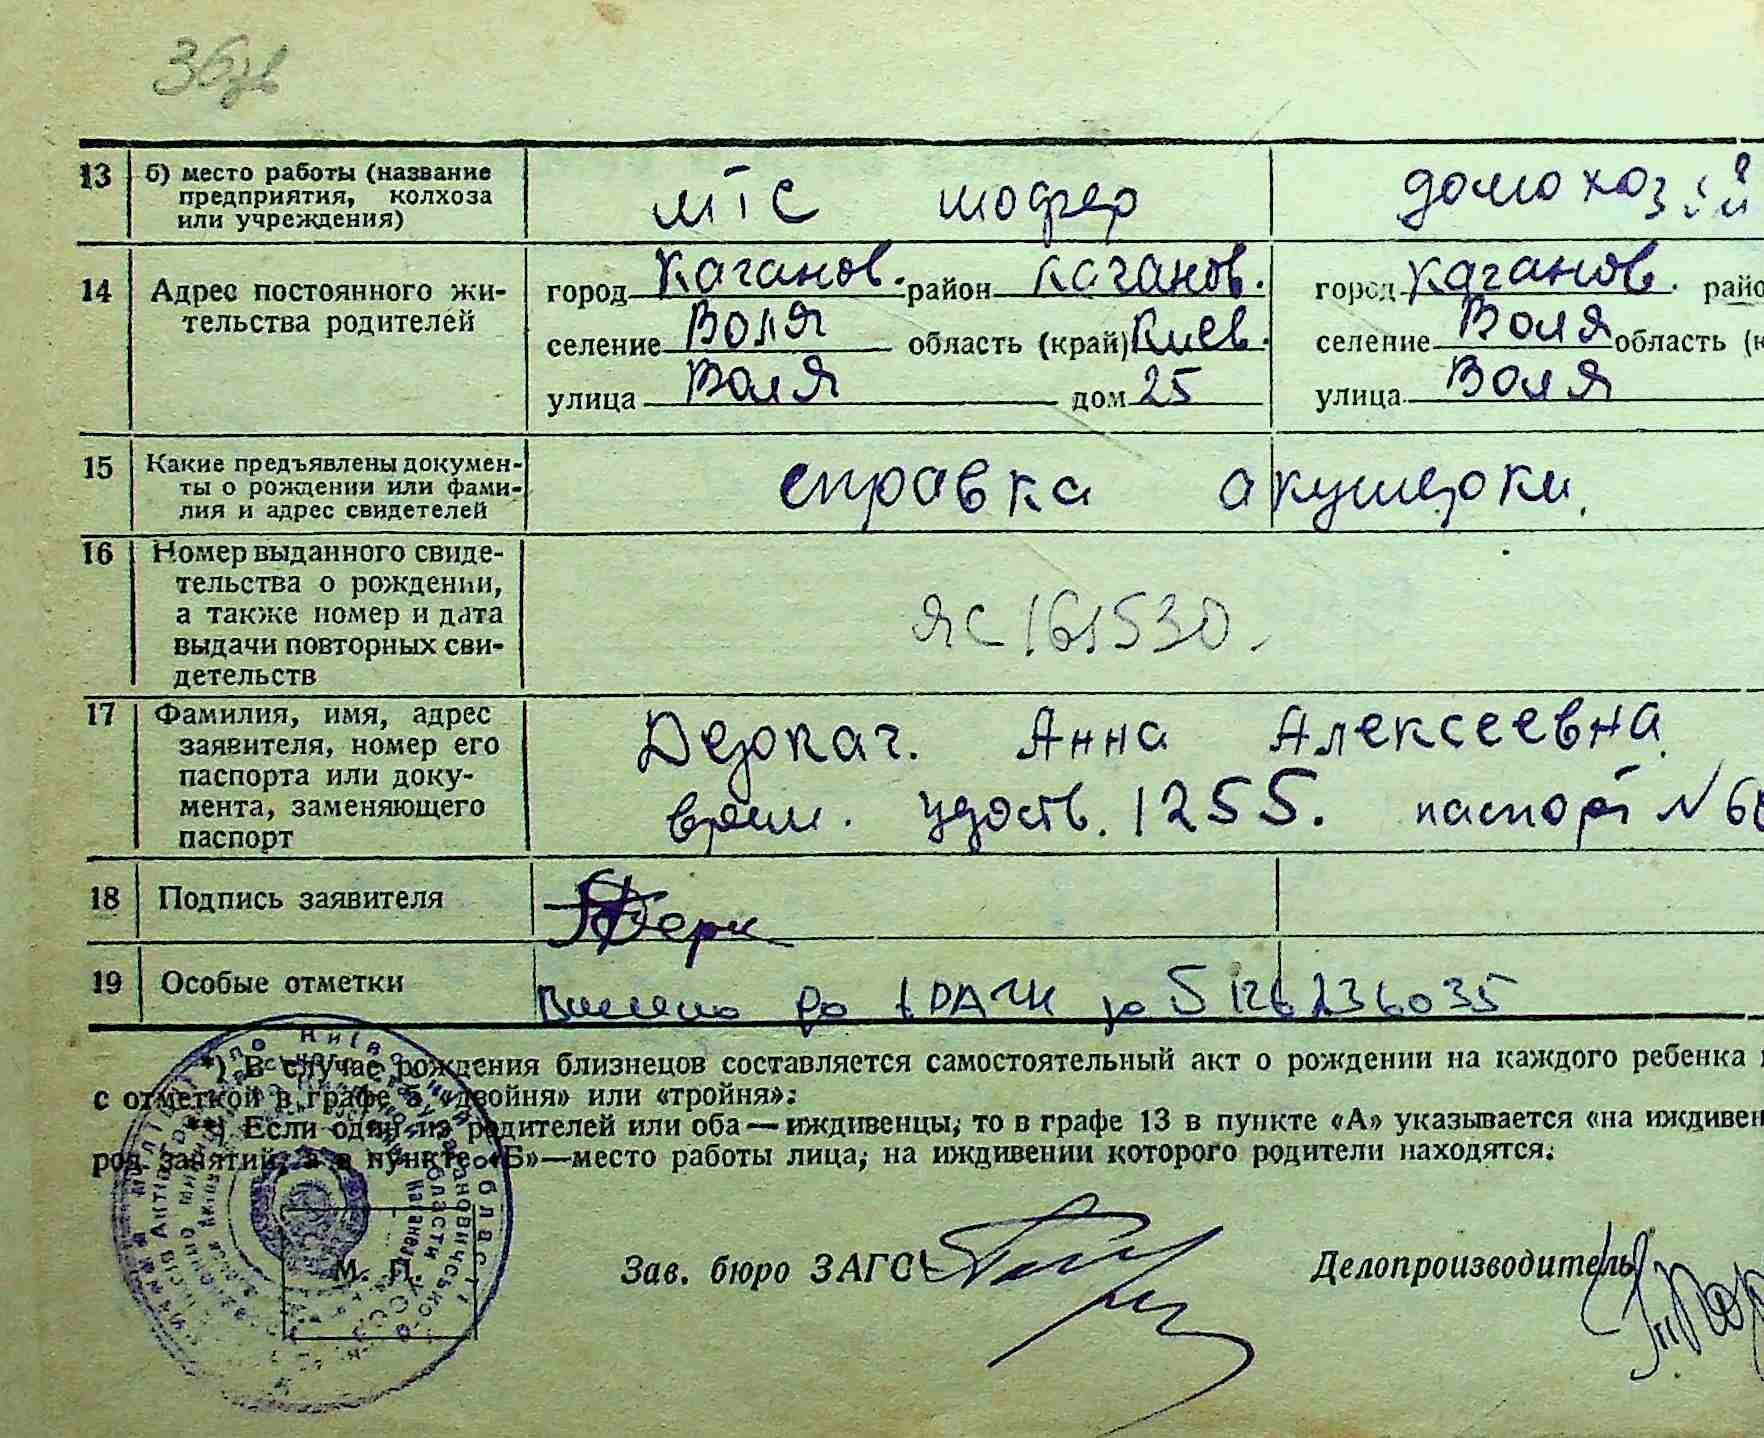 36зв
13 б) место работы (название МТС шофер домохозяй
предприятия, колхоза
или учреждения)
14 Адрес постоянного жи- город Каганов. район Каганов. город Каганов. райо
тельства родителей селение Воля область (край) Киев. селение Воля область (к
улица Воля дом 25 улица Воля
15 Какие предъявлены докумен- справка акушерки.
ты о рождении или фами-
лия и адрес свидетелей
16 Номер выданного свиде-
тельства о рождении,
а также номер и дата ЯС 161530.
выдачи повторных сви-
детельств
17 Фамилия, имя, адрес Деркач. Анна Алексеевна
заявителя, номер его
паспорта или доку- врем. удоств. 1255. паспорт N 6
мента, заменяющего
паспорт
18 Подпись заявителя Дерк
19 Особые отметки Внесено до ДРАЦС за 5126236035
*) В случае рождения близнецов составляется самостоятельный акт о рождении на каждого ребенка
с отметкой в графе 5 «двойня» или «тройня».
**) Если один из родителей или оба — иждивенцы, то в графе 13 в пункте «А» указывается «на иждивен
род занятий, а в пункте «Б»—место работы лица, на иждивении которого родители находятся.
М. П. Зав. бюро ЗАГС Делопроизводитель